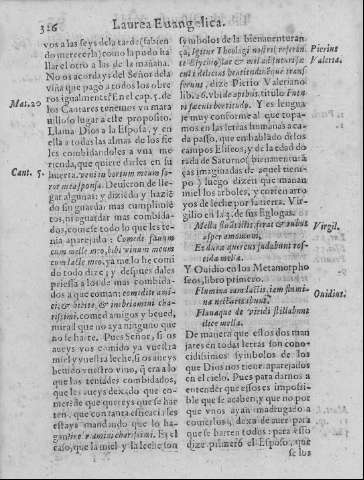 326 Laurea Euangelica.
vos a las seys dela tarde (sabien
do merecerla) como la podia ha
llar el otro a las de la mañana.
No os acordays del Señor dela
viña que pago a todos los obre
ros igualmente? En el cap. 5. de
los Cantares tenemos vn mara
uilloso lugar a este proposito.
Llama Dios a la Esposa, y en
ella a todas las almas de los fie
les combidandoles a vna me
rienda, que quiere darles en su
huerta.
Deuieron de lle
gar algunas: y diziedo y hazié
do sin guardar mas cumplimié
tos, ni aguardar mas combida-
dos, comese todo lo que les te-
nia aparejado: Comedi fauum
cum melle meo, bibi vinum meum
cum lacte meo, ya me lo he comi
do todo dize; y despues dales
priessa a los de mas combida-
dos a que coman: comedite ami-
ci, & bibite, & inebriamini cha-
rissimi. comed amigos y beued,
mirad que no aya ninguno que
no se harte. Pues Señor, si os
aueys vos comido ya vuestra
miel y vuestra leche, si os aueys
beuido vuestro vino, q̃ sera a lo
que las teneades combidados,
que les aueys dexado que co-
mer? de que quereys que se har
ten, que con tanta eficacia les
estays mandando que lo ha-
gan?
Es el
caso, que la miel y la leche son
Mat. 20
Cant. 5.
symbolos de la bienauenturan
ça; Igitur Theologi nostri referun
te Elychio, lac & mel ad futura sae
cunt delicias beatitudinis que trans
ferunt, dize Pierio Valeriano
lib. 26. vbi de apibus, titulo Futu
ra faecuti beatitudo. Y es lengua
je muy conforme al que topa-
mos en las letras humanas a ca
da passo, que en hablando de los
campos Eliseos, y de la edad do
rada de Saturno (bienauenturã
ças imaginadas de aquel tiem-
po) luego dizen que manan
miel los arboles, y corren arro
yos de leche por la tierra. Vir-
gilio en la 3. de sus Eglogas.
Mella fluant illi, ferat & rubus
asper amomum,
Et dura quercus sudabunt ros-
cida mella.
Y Ouidio en los Metamorpho
seos, libro primero.
Flumina iam lactis, iam flumi-
na nectaris ibant,
Flauaque de viridi stillabant
ilice mella.
De manera que estos dos man
jares en todas letras son cono-
cidissimos symbolos de los
que Dios nos tiene aparejados
en el cielo. Pues para darnos a
entender que essos es impossi-
ble que se acaben, y que no por
que vnos ayan madrugado a
comerlos, ha de auer para
que se harten todos: para esto
dize primero el Esposo, que
se los
Pierius
Valeria.
Virgil.
Ouidius.